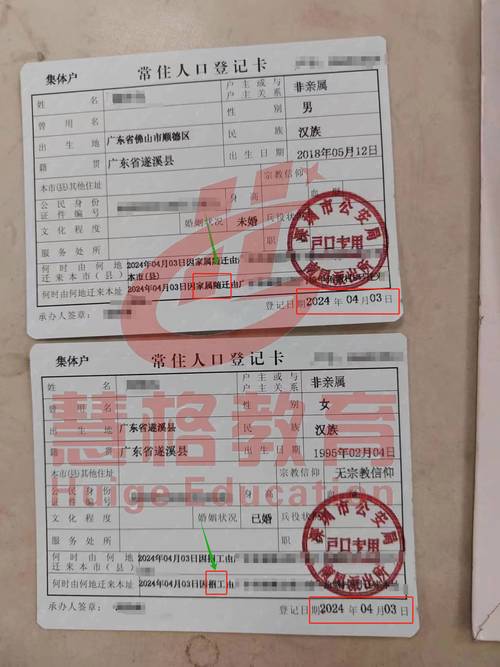 集体户 常住人口登记卡
姓 名 户主或与户主关系 非亲属
曾 用 名 性 别 男
出 生 地 广东省佛山市顺德区 民 族 汉族
籍 贯 广东省遂溪县 出生日期 2018年05月12日
本市(县)其他住址 宗教信仰
公民身份证件编号 身高 血型
文化程度 婚姻状况 未婚 兵役状况
服务处所 职
何时由何地迁来本市(县) 2024年04月03日因家属随迁由
本市(县)
何时由何地迁来本址 2024年04月03日因家属随迁由广
承办人签章： 登记日期：2024年04月03日
深圳市公安局
户口专用
集体户 常住人口登记卡
姓 名 户主或与户主关系 非亲属
曾 用 名 性 别 女
出 生 地 广东省遂溪县 民 族 汉族
籍 贯 广东省遂溪县 出生日期 1995年02月04日
本市(县)其他住址 宗教信仰 无宗教信仰
公民身份证件编号
文化程度 婚姻状况 已婚 兵役状况
服务处所
何时由何地迁来本市(县) 2024年04月03日因招工由
何时由何地迁来本址 2024年04月03日因招工由
承办人签章： 登记日期：2024年04月03日
深圳市公安局
户口专用
慧格教育
Huige Education